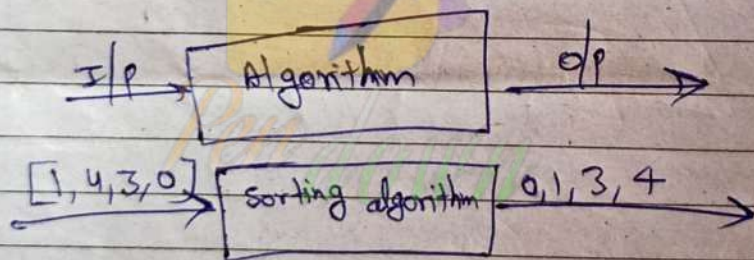 I/P Algorithm O/P
[1, 4, 3, 0] sorting algorithm 0, 1, 3, 4